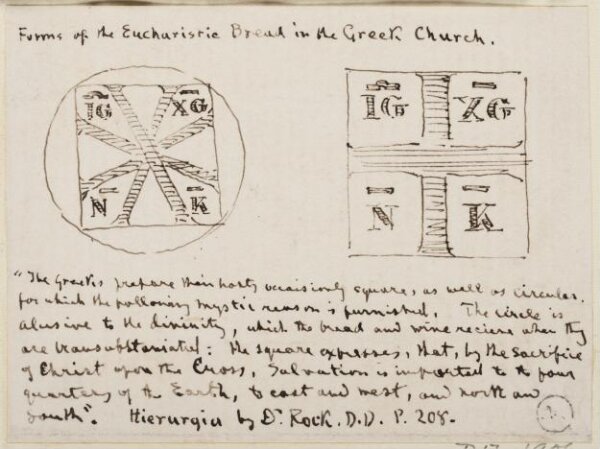 Forms of the Eucharistic Bread in the Greek Church.
IG XG
N K
IG XG
N K
"The Greeks prepare their hosts occaisionly square, as well as circular.
for which the following mystic reason is furnished. The circle is
alusive to the divinity, which the bread and wine recieve when they
are transubstantiated: the square expresses, that, by the Sacrifice
of Christ upon the Cross, Salvation is imparted to the four
quarters of the Earth, to east and west, and north and
South". Hierurgia by Dr. Rock. D.D. P. 208.